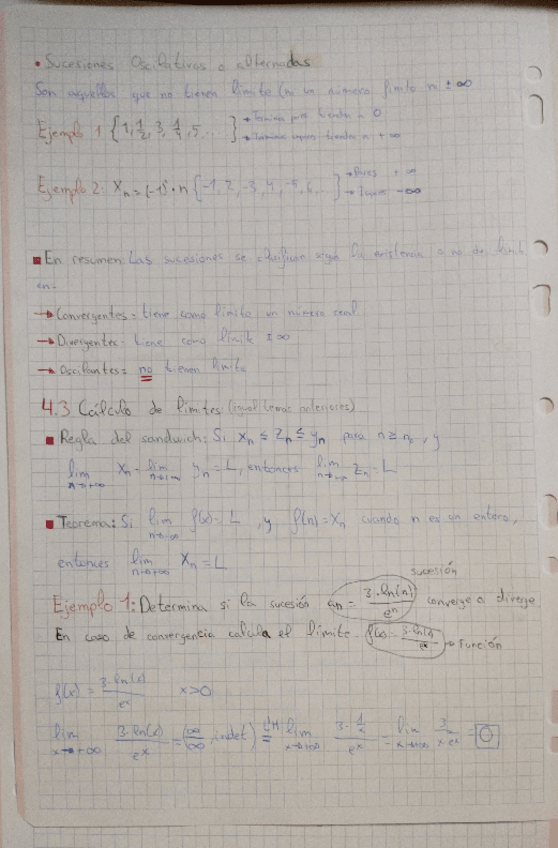 • Sucesiones Oscilativas o alternadas
Son aquellas que no tienen límite (ni un número finito ni ±∞
Ejemplo 1 {1, 1/2, 3, 1/4, 5, ...} → Términos pares tienden a 0
→ Términos impares tienden a +∞
Ejemplo 2: Xn = (-1)ⁿ · n {-1, 2, -3, 4, -5, 6, ...} → Pares +∞
→ -∞
■ En resumen: Las sucesiones se clasifican según la existencia o no de límite
en:
→ Convergentes = tiene como límite un número real
→ Divergentes: tiene como límite ±∞
→ Oscilantes = no tienen límite
4.3 Cálculo de límites (igual temas anteriores)
■ Regla del sandwich: Si Xn ≤ Zn ≤ Yn para n ≥ n₀, y
lim n→+∞ Xn = lim n→+∞ Yn = L, entonces lim n→+∞ Zn = L
■ Teorema: Si lim f(x) = L, y f(n) = Xn cuando n es un entero,
entonces lim n→+∞ Xn = L
sucesión
Ejemplo 1: Determina si la sucesión an = 3·ln(n)/eⁿ converge o diverge
En caso de convergencia calcula el límite. f(x) = 3·ln(x)/eˣ → Función
f(x) = 3·ln(x)/eˣ x>0
lim x→+∞ 3·ln(x)/eˣ = (∞/∞, indet) L'H = lim x→+∞ 3·1/x / eˣ = lim x→+∞ 3/x·eˣ = 0